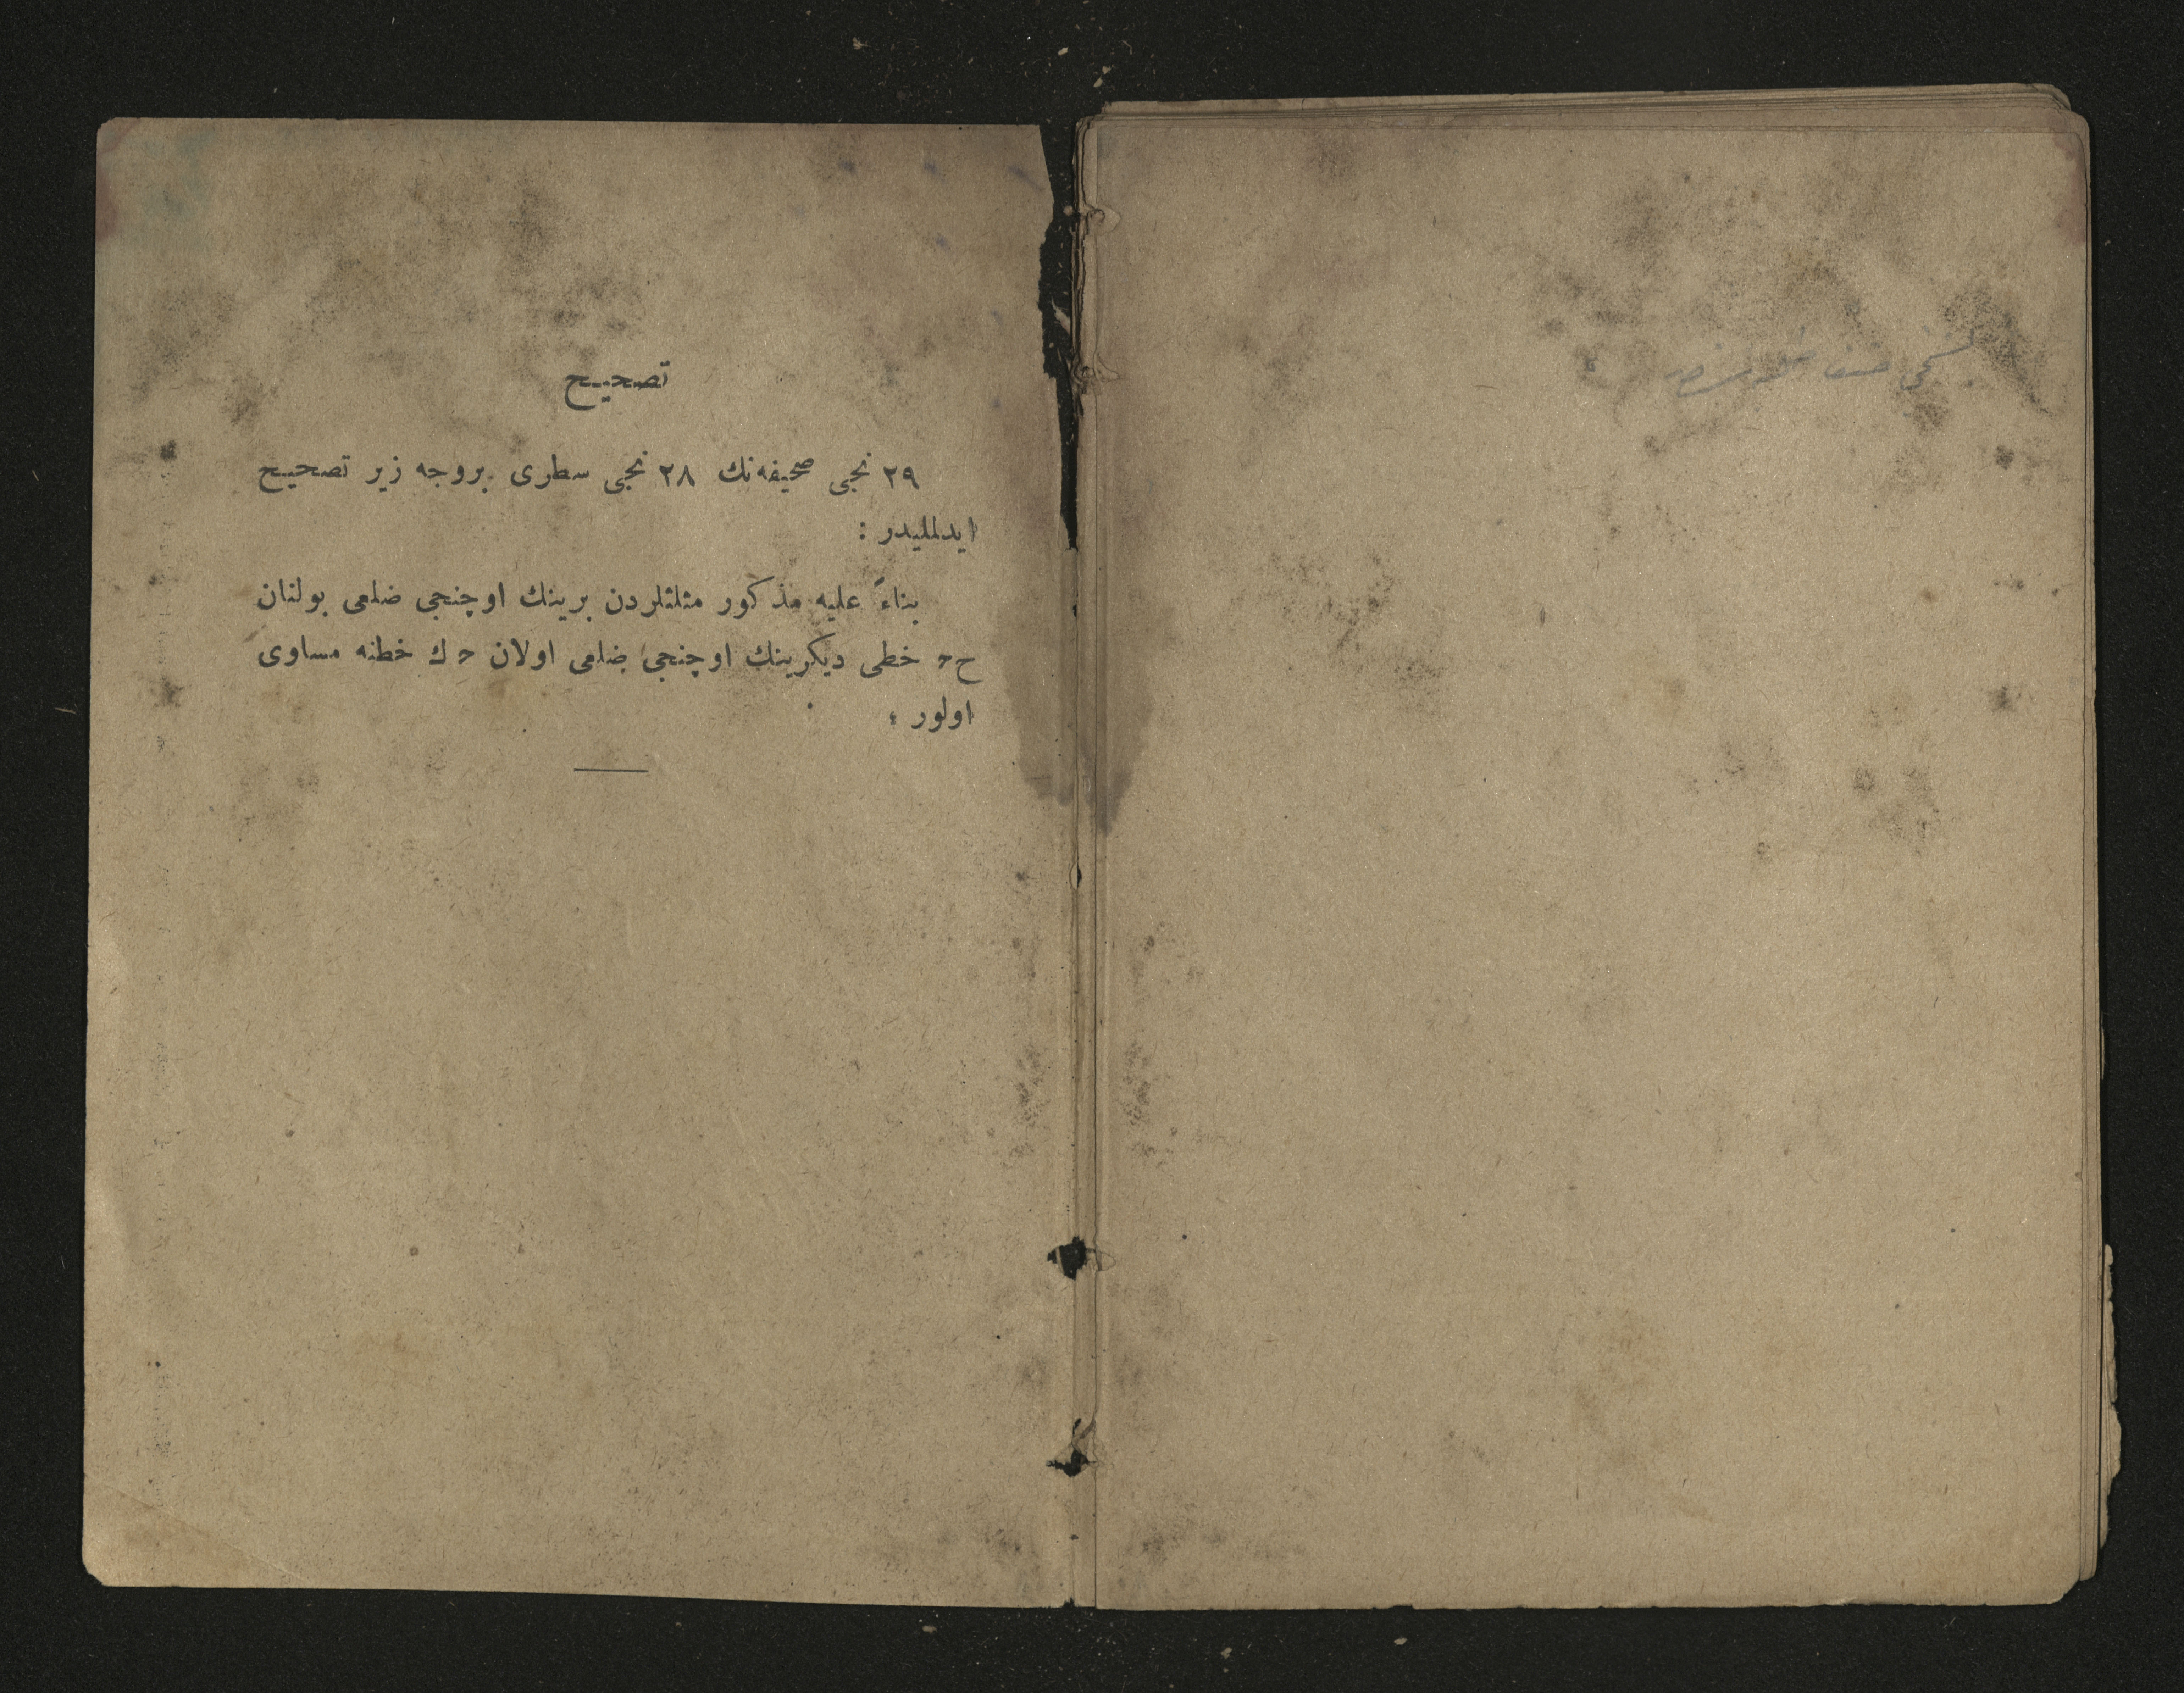 تصحيح
٢٩ نجی صحيفه‌نك ٢٨ نجی سطری بروجه زير تصحيح
ايدلمليدر :
بناءً عليه مذكور مثلثلردن برينك اوچنجی ضلعی بولنان
ح‍ـ خطی ديكرينك اوچنجی ضلعی اولان حـ ك خطنه مساوی
اولور ؛